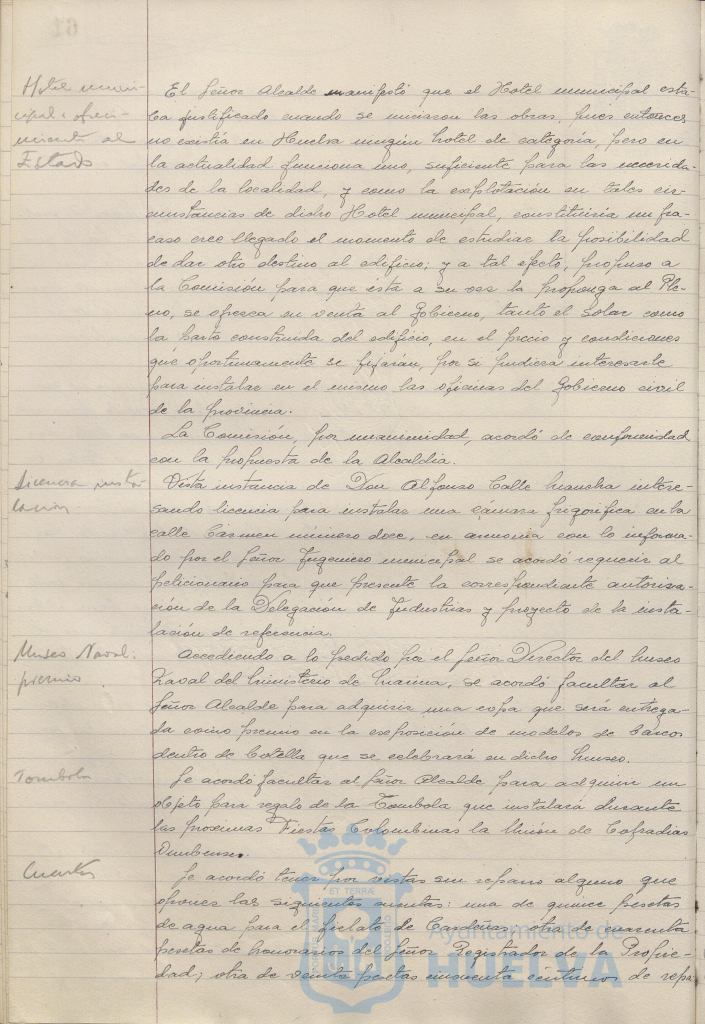 Hotel muni-
cipal: ofreci-
miento al
Estado
El Señor Alcalde manifestó que el Hotel municipal esta-
ba justificado cuando se iniciaron las obras, pues entonces
no existía en Huelva ningún hotel de categoría, pero en
la actualidad funciona uno, suficiente para las necesida-
des de la localidad, y como la explotación en tales cir-
cunstancias de dicho Hotel municipal, constituiría un fra-
caso cree llegado el momento de estudiar la posibilidad
de dar otro destino al edificio; y a tal efecto, propuso a
la Comisión para que ésta a su vez la proponga al Ple-
no, se ofrezca en venta al Gobierno, tanto el solar como
la parte construida del edificio, en el precio y condiciones
que oportunamente se fijarán, por si pudiera interesarle
para instalar en el mismo las oficinas del Gobierno civil
de la provincia.
La Comisión, por unanimidad, acordó de conformidad
con la propuesta de la Alcaldía.
Licencia insta-
lación
Vista instancia de Don Alfonso Calle Mancha intere-
sando licencia para instalar una cámara frigorífica en la
calle Carmen número doce, en armonía con lo informa-
do por el Señor Ingeniero municipal se acordó requerir al
peticionario para que presente la correspondiente autoriza-
ción de la Delegación de Industrias y proyecto de la insta-
lación de referencia.
Museo Naval.
premio
Accediendo a lo pedido por el Señor Director del Museo
Naval del Ministerio de Marina, se acordó facultar al
Señor Alcalde para adquirir una copa que será entrega-
da como premio en la exposición de modelos de barcos
dentro de botella que se celebrará en dicho Museo.
Tombola
Se acordó facultar al Señor Alcalde para adquirir un
objeto para regalo de la Tombola que instalará durante
las proximas Fiestas Colombinas la Unión de Cofradias
Onubense.
Cuentas
Se acordó tener por vistas sin reparo alguno que
oponer las siguientes cuentas: una de quince pesetas
de agua para el fielato de Cardeñas, otra de cuarenta
pesetas de honorarios del Señor Registrador de la Propie-
dad; otra de veinte pesetas cincuenta centimos de repa-
Ayuntamiento de
HUELVA